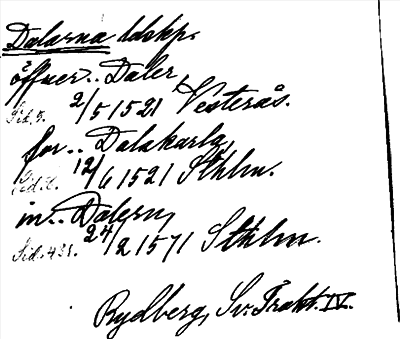 Dalarna ldskp.
öffuer.. Daler,
Sid. 5. 2/5 1521 Vesterås.
for.. Dalakarla,
Sid. 12/6 1521 Sthlm.
in.. Dalern,
Sid. 438. 24/2 1571 Sthlm.
Rydberg, Sv. Trakt. IV.